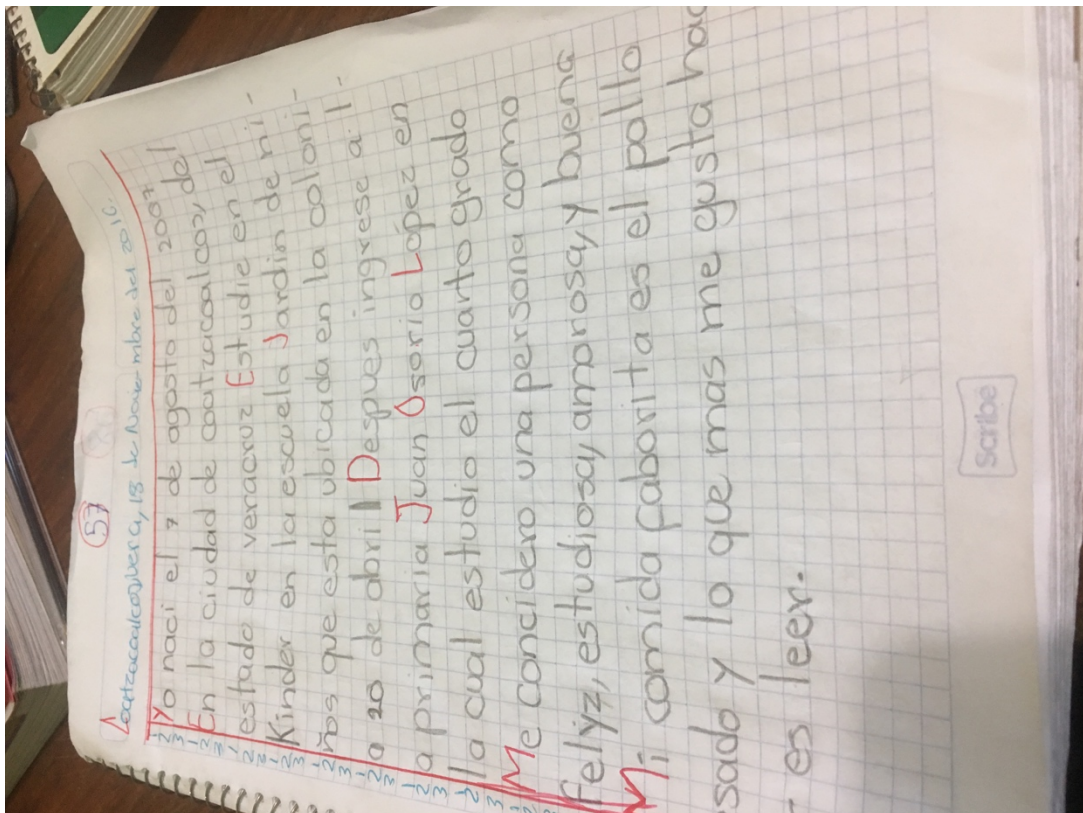 57
Coatzacoalcos, Vera, 18 de Nove mbre del 2016.
Yo naci el 7 de agosto del 2007
En la ciudad de coatzacoalcos, del
estado de veracruz Estudie en el
Kinder en la escuela Jardin de ni-
ños que esta ubicada en la coloni-
a 20 de abril Despues ingrese a l-
a primaria Juan Osorio López en
la cual estudio el cuarto grado
Me concidero una persona como
feliyz, estudiosa, amorosa, y buena
Mi comida faborita es el pollo
sado y lo que mas me gusta hac
- es leer.
Scribe